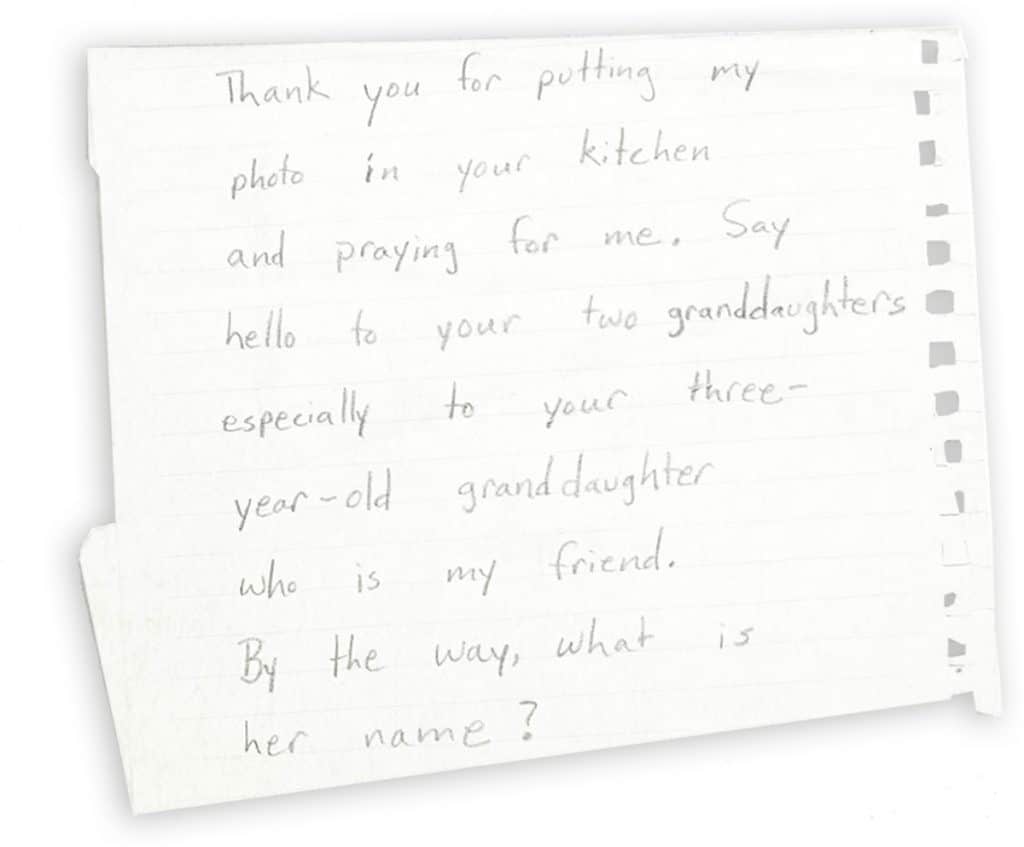 Thank you for putting my
photo in your kitchen
and praying for me. Say
hello to your two granddaughters
especially to your three-
year-old granddaughter
who is my friend.
By the way, what is
her name?